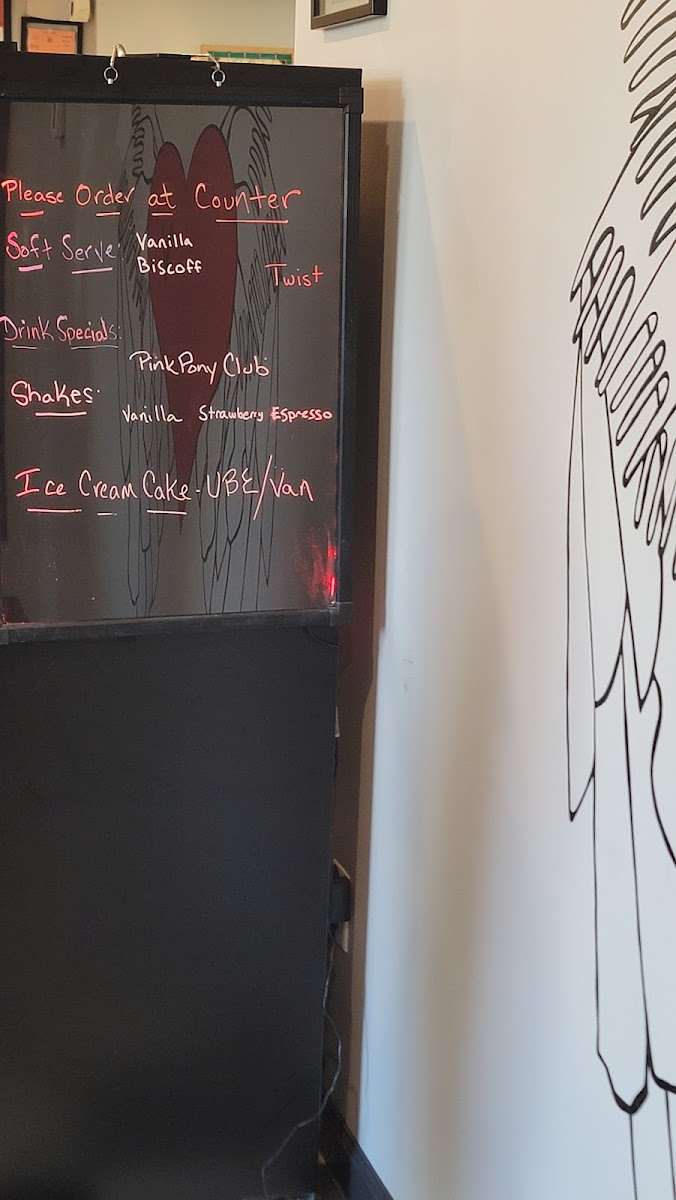 Please Order at Counter
Soft Serve: Vanilla
Biscoff
Twist
Drink Specials:
Pink Pony Club
Shakes:
Vanilla Strawberry Espresso
Ice Cream Cake - UBE/Van